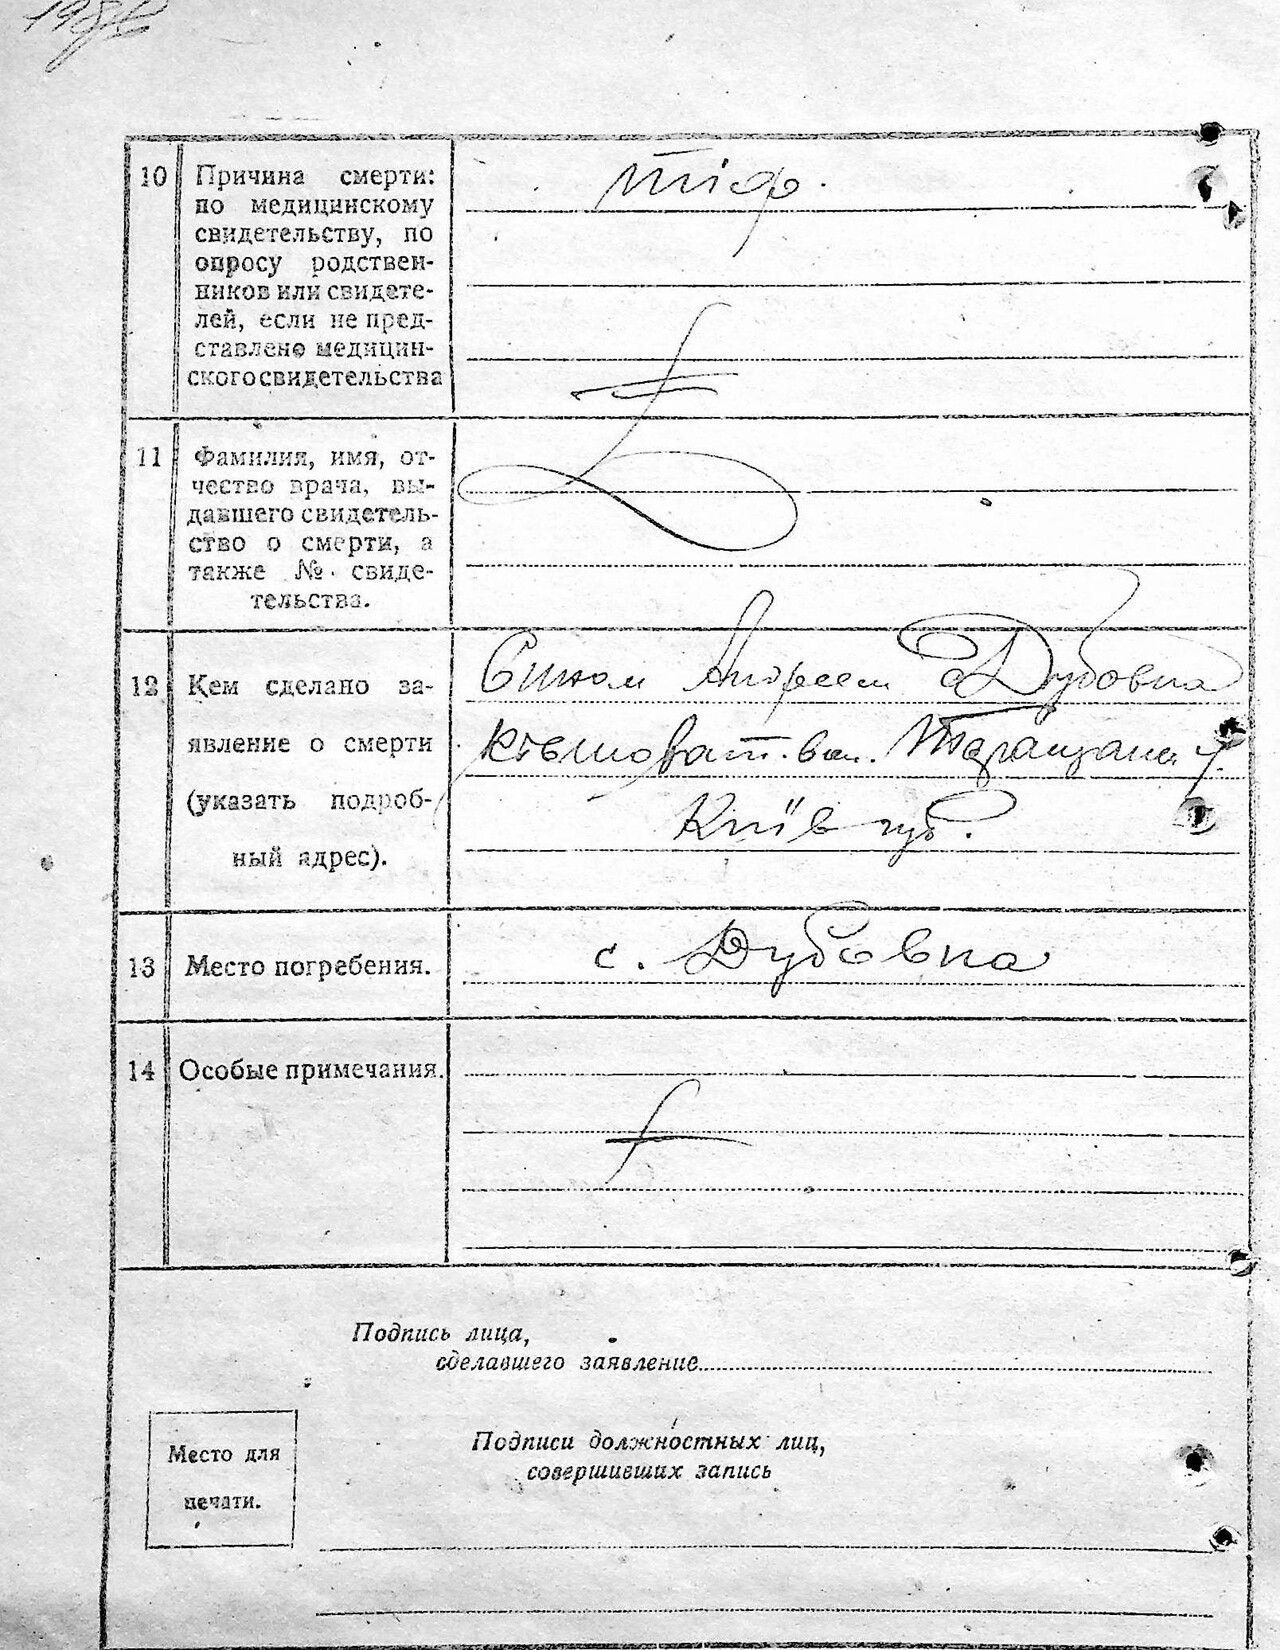 10 Причина смерти:
по медицинскому
свидетельству, по
опросу родствен-
ников или свидете-
лей, если не пред-
ставлено медицин-
ского свидетельства
тіф.
11 Фамилия, имя, от-
чество врача, вы-
давшего свидетель-
ство о смерти, а
также № свиде-
тельства.
12 Кем сделано за-
явление о смерти
(указать подроб-
ный адрес).
Сином Андреем с Дубовка
вол. Таращан у.
Київ губ.
13 Место погребения.
с. Дубовка
14 Особые примечания.
Подпись лица,
сделавшего заявление
Место для
печати.
Подписи должностных лиц,
совершивших запись